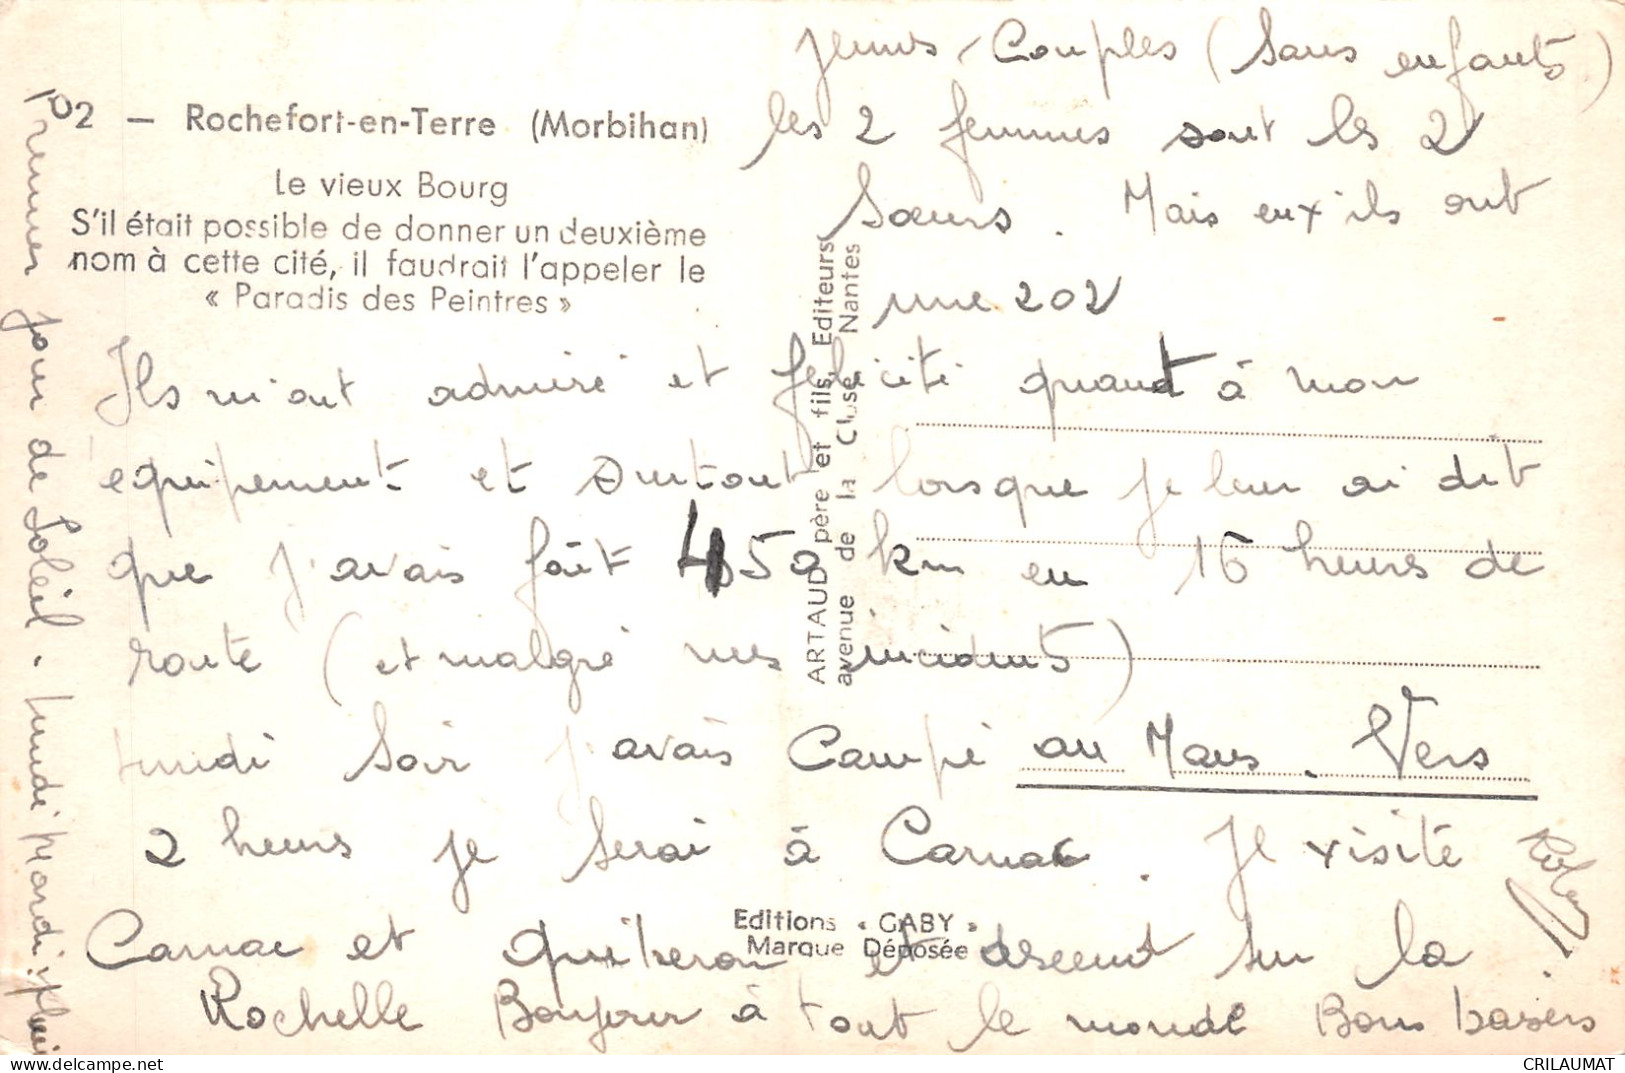 jeunes Couples (Sans enfants)
les 2 femmes sont les 2
Soeurs. Mais eux ils ont
une 202
102 — Rochefort-en-Terre (Morbihan)
Le vieux Bourg
S'il était possible de donner un deuxième
nom à cette cité, il faudrait l'appeler le
« Paradis des Peintres »
Ils m'ont admiré et félicité quant à mon
équipement et surtout lorsque je leur ai dit
que j'avais fait 450 km en 16 heures de
route (et malgré mes incidents)
lundi Soir j'avais Campé au Mans. Vers
2 heures je serai à Carnac. Je visite
Carnac et Quiberon et descend sur la
Rochelle Bonjour à tout le monde Bons baisers
Premier jour de Soleil. lundi Mardi : pluie
ARTAUD père et fils, Editeurs
avenue de la Close, Nantes
Editions « GABY »
Marque Déposée
CRILAUMAT